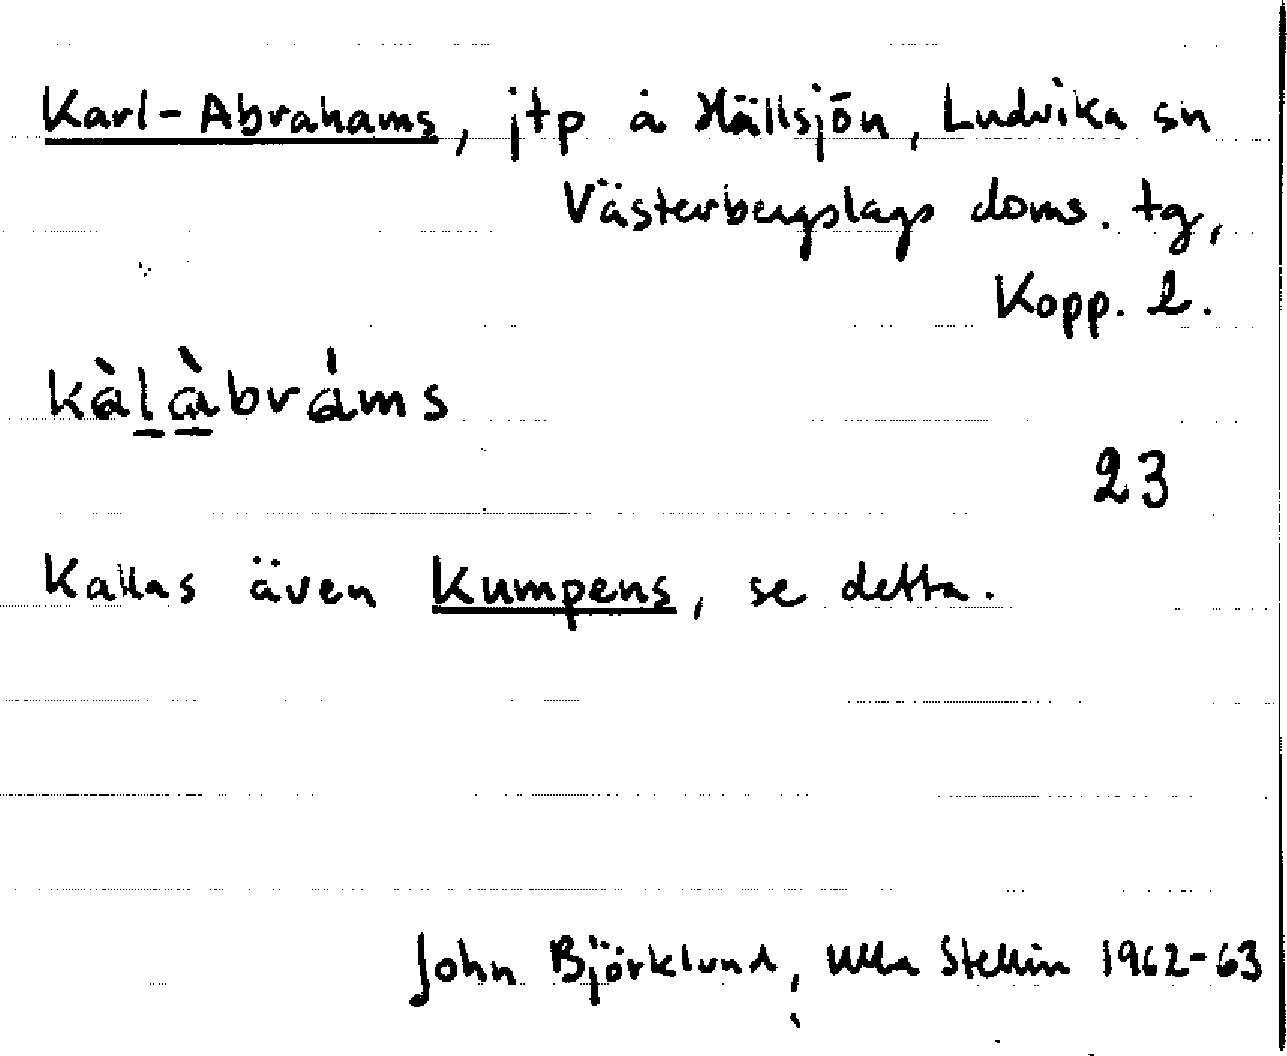 Karl-Abrahams, jtp å Hällsjön, Ludvika sn
Västerbergslags doms. tg,
Kopp. l.
kàl̠à̠bráms
23
Kallas även Kumpens, se detta.
John Björklund, Ulla Stellin 1962-63